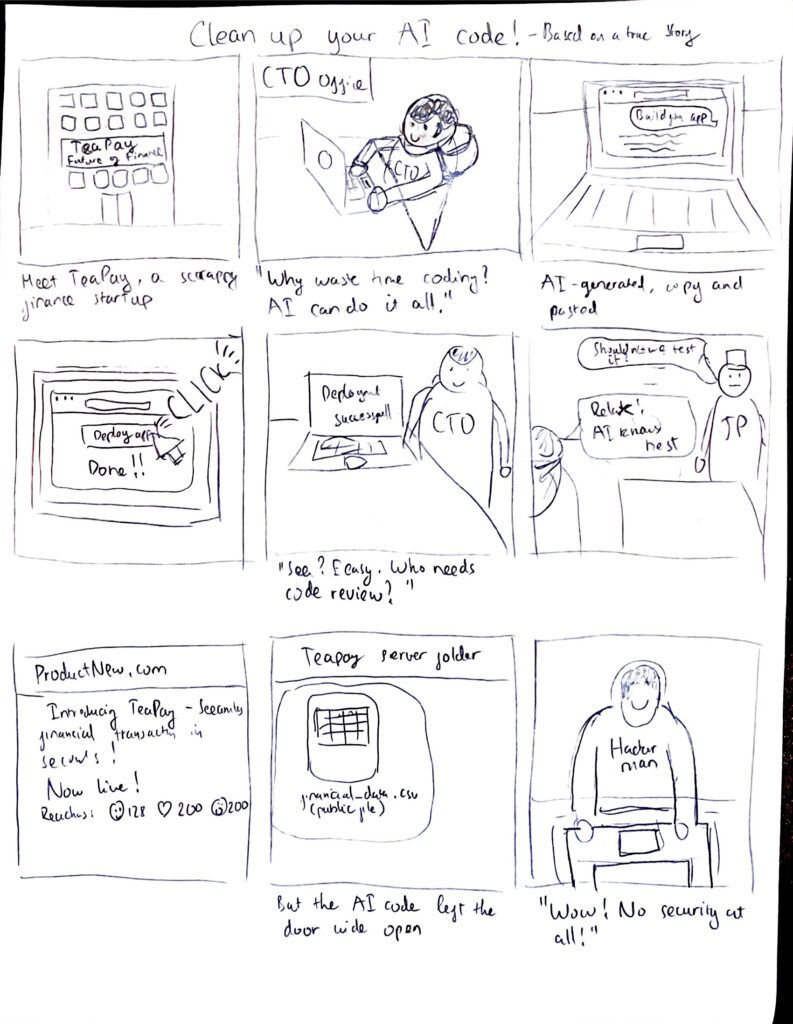 Clean up your AI code! - Based on a true story
TeaPay
Future of Finance
Meet TeaPay, a scrappy
finance startup
CTO Office
CTO
"Why waste time coding?
AI can do it all."
Build you app
AI-generated, copy and
pasted
CLICK
Deploy app
Done!!
Deployment
successful
CTO
"See? Easy. Who needs
code review?"
Shouldn't we test
it?
Relax!
AI knows
best
JP
ProductNew.com
Introducing TeaPay - Seamless
financial transactn in
seconds!
Now live!
128 200 200
Teapay server folder
financial_data.csv
(public file)
But the AI code left the
door wide open
Hacker
man
"Wow! No security at
all!"